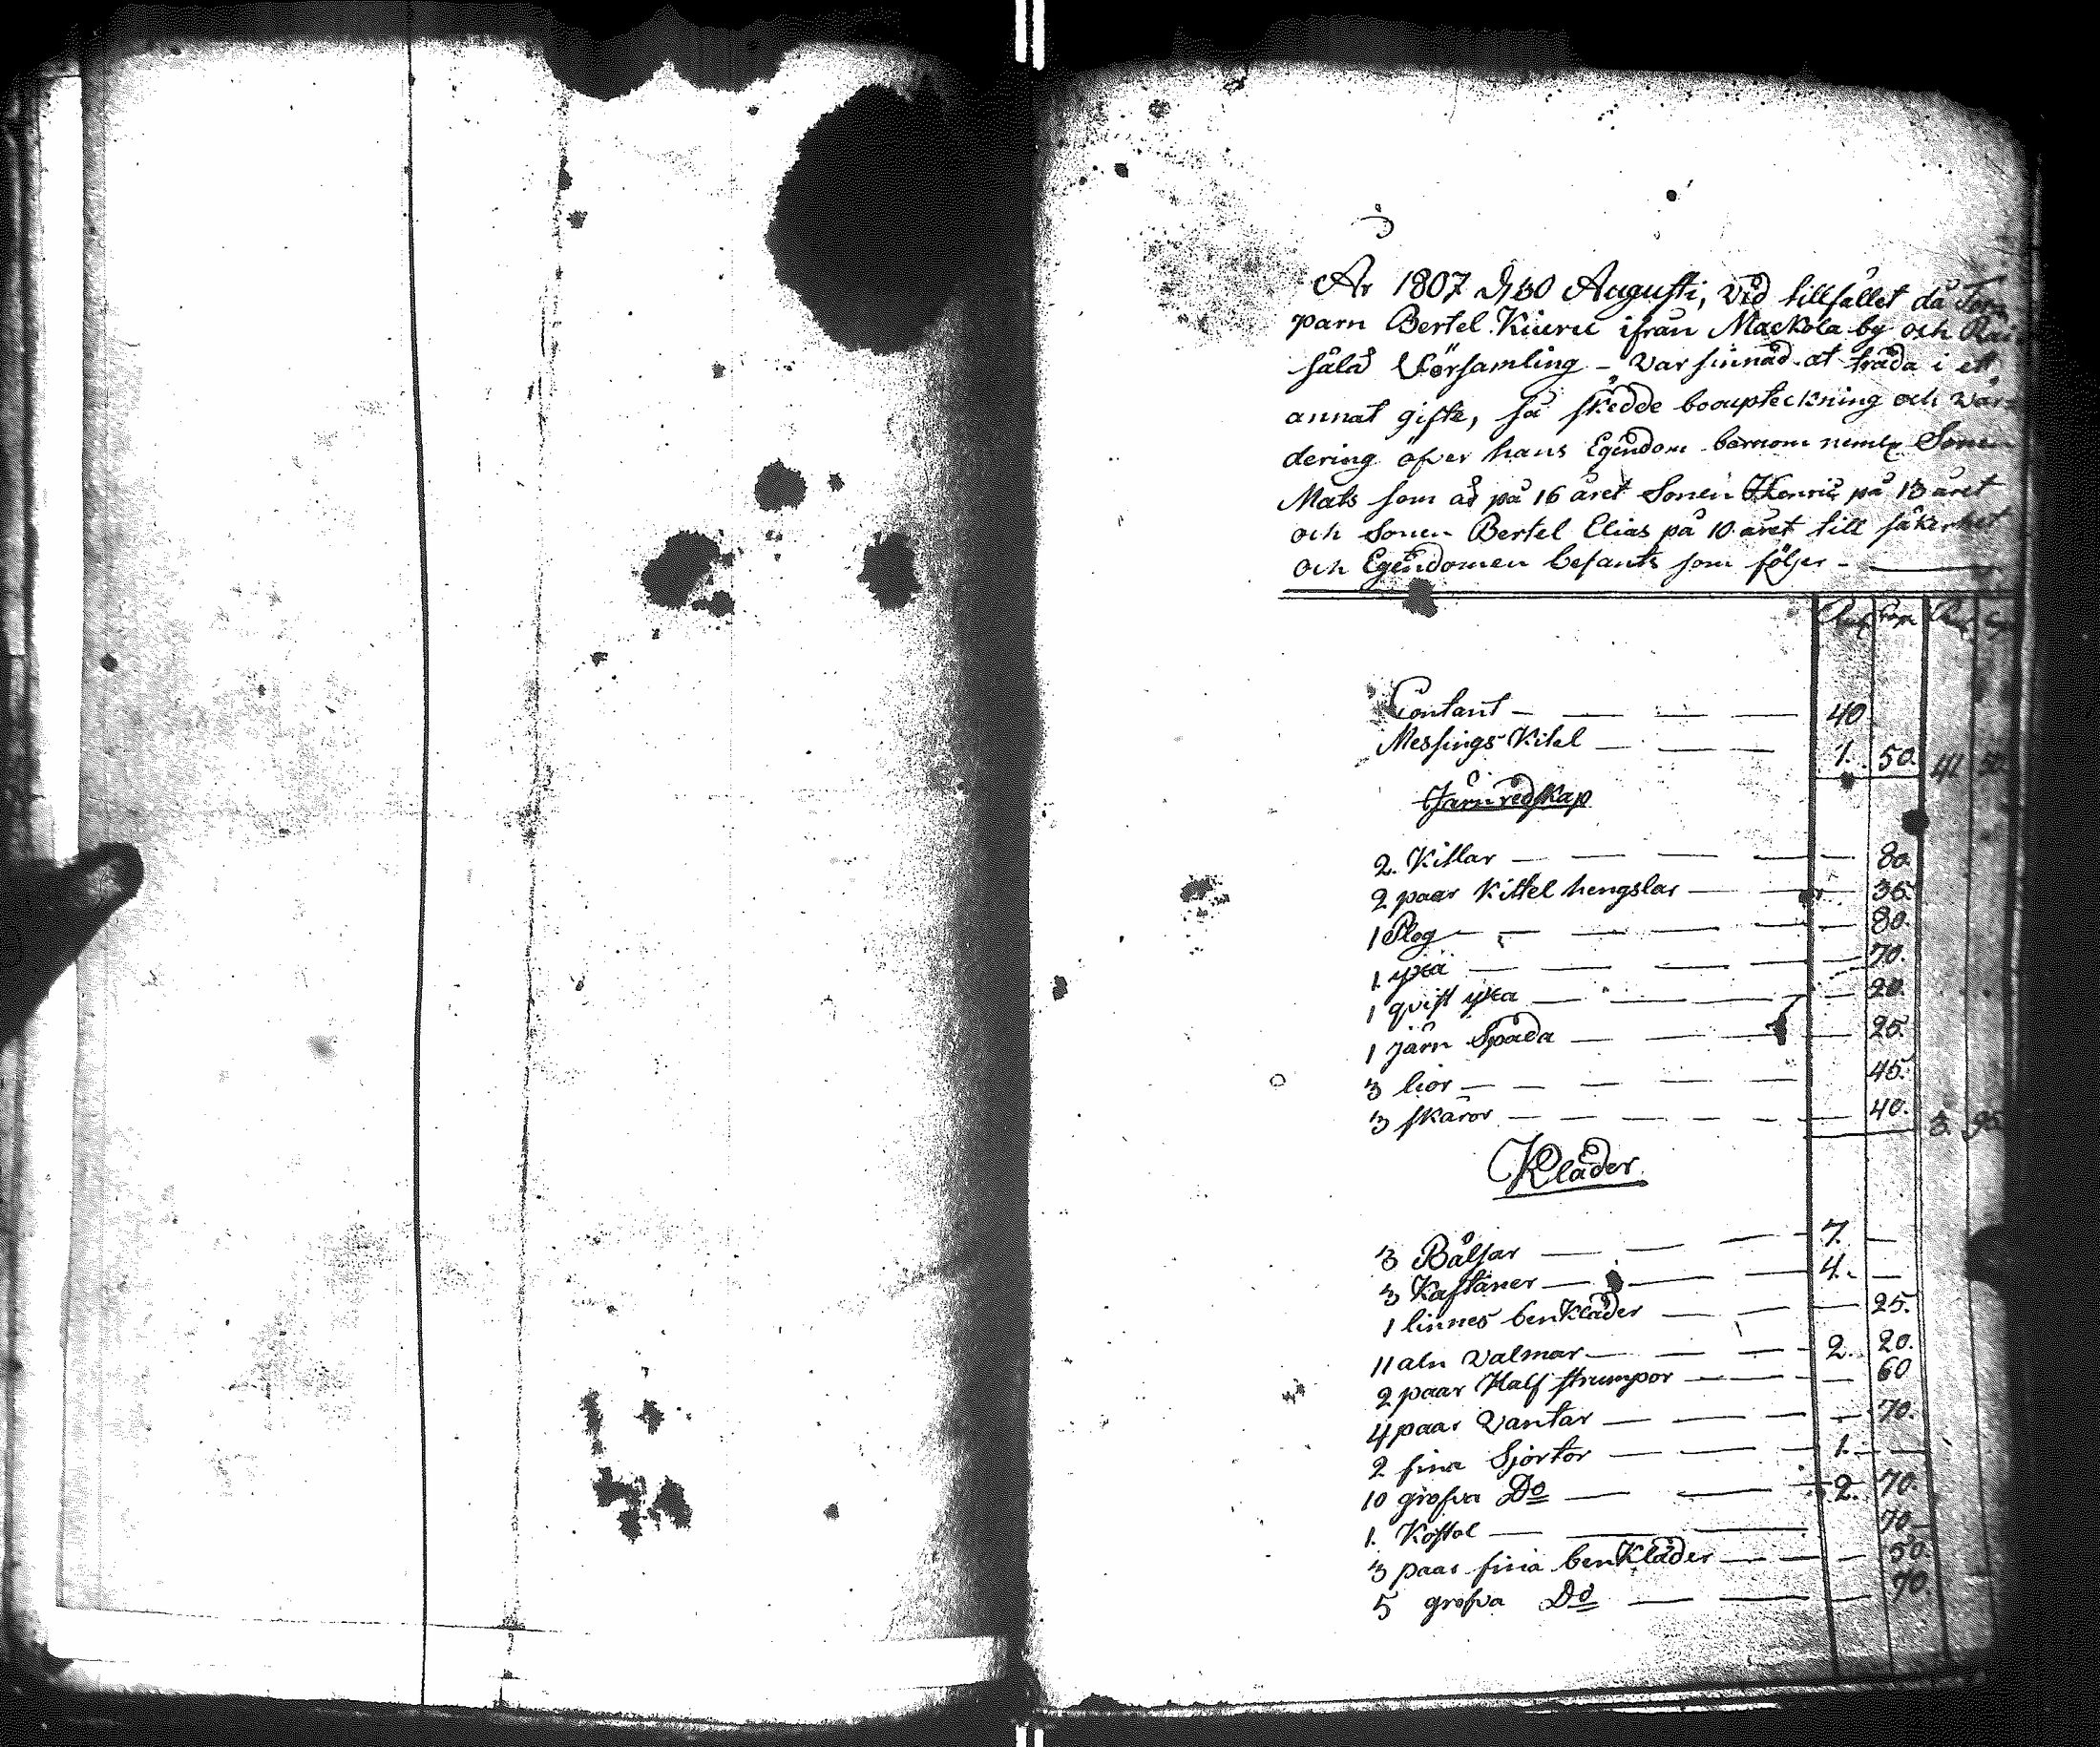 År 1807 d 30 Augusti, vid tillfället då Tor
parn Bertel Kiuru ifrån Mackola by och Rai
sälä Församling – var sinnad at träda i ett
annat gifte, så skedde bouptekning och vär=
dering öfver hans Egendom barnom neml. Sonen
Mats som är på 16 året Sonen Henric på 13 året
och Sonen Bertel Elias på 10 året till säkerhet
och Egendomen befants som följer –
Rub Cop Rub Cop
Contant – 40
Messings Kitel – 1. 50. 41 50.
Järnredskap
2. Kitlar – 80.
2 paar Kittel hengslar – 35.
1 Plog – 80.
1 yxa – 70.
1 qvist yxa – 20.
1 järn Spada – 25.
3 lior – 45.
3 skäror – 40. 3. 95
Kläder
3 Bälsar – 7. –
3 Kaftaner – 4. –
1 linnes benkläder – 25.
11 aln valmar – 2. 20.
2 paar Half strumpor – 60
4 paar Vantar – 70.
2 fina Sjortor – 1. –
10 grofva Do – 2. 70.
1. Kostol – 70
3 paar fina benkläder – 50.
5 grofva Do – 70.